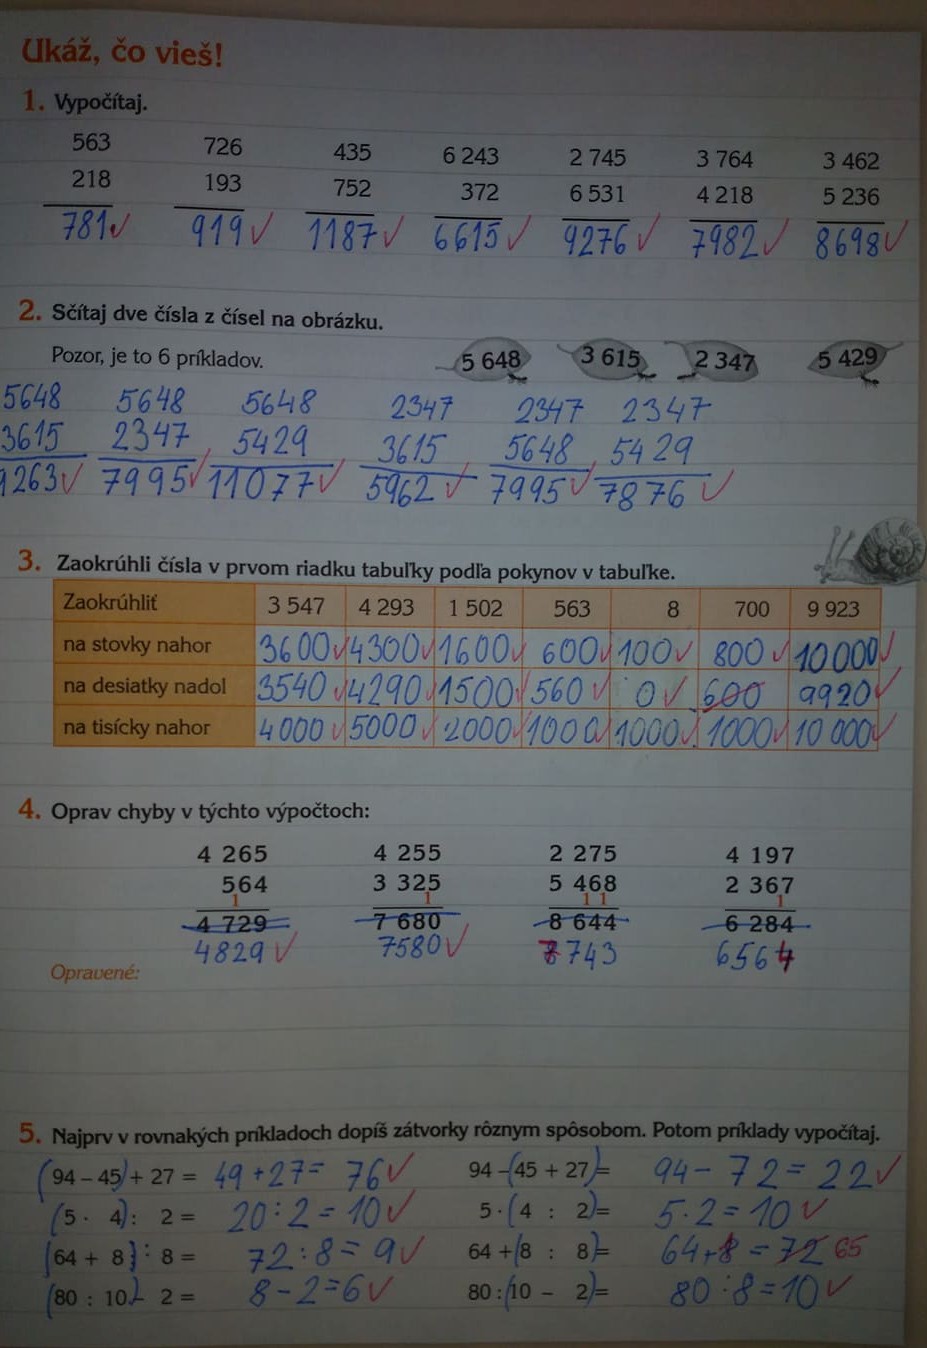 Ukáž, čo vieš!
1. Vypočítaj.
563 726 435 6 243 2 745 3 764 3 462
218 193 752 372 6 531 4 218 5 236
781 919 1187 6615 9276 7982 8698
2. Sčítaj dve čísla z čísel na obrázku.
Pozor, je to 6 príkladov. 5 648 3 615 2 347 5 429
5648 5648 5648 2347 2347 2347
3615 2347 5429 3615 5648 5429
9263 7995 11077 5962 7995 7876
3. Zaokrúhli čísla v prvom riadku tabuľky podľa pokynov v tabuľke.
Zaokrúhliť 3 547 4 293 1 502 563 8 700 9 923
na stovky nahor 3600 4300 1600 600 100 800 10000
na desiatky nadol 3540 4290 1500 560 0 600 9920
na tisícky nahor 4000 5000 2000 1000 1000 1000 10 000
4. Oprav chyby v týchto výpočtoch:
4 265 4 255 2 275 4 197
564 3 325 5 468 2 367
1 1 1 1 1
4 729 7 680 8 644 6 284
4829 7580 7743 6564
Opravené:
5. Najprv v rovnakých príkladoch dopíš zátvorky rôznym spôsobom. Potom príklady vypočítaj.
(94 – 45) + 27 = 49+27= 76 94 – (45 + 27) = 94 - 72 = 22
(5 · 4) : 2 = 20:2=10 5 · (4 : 2) = 5·2=10
(64 + 8) : 8 = 72:8=9 64 + (8 : 8) = 64+1 = 72 65
(80 : 10) – 2 = 8-2=6 80 : (10 – 2) = 80:8=10